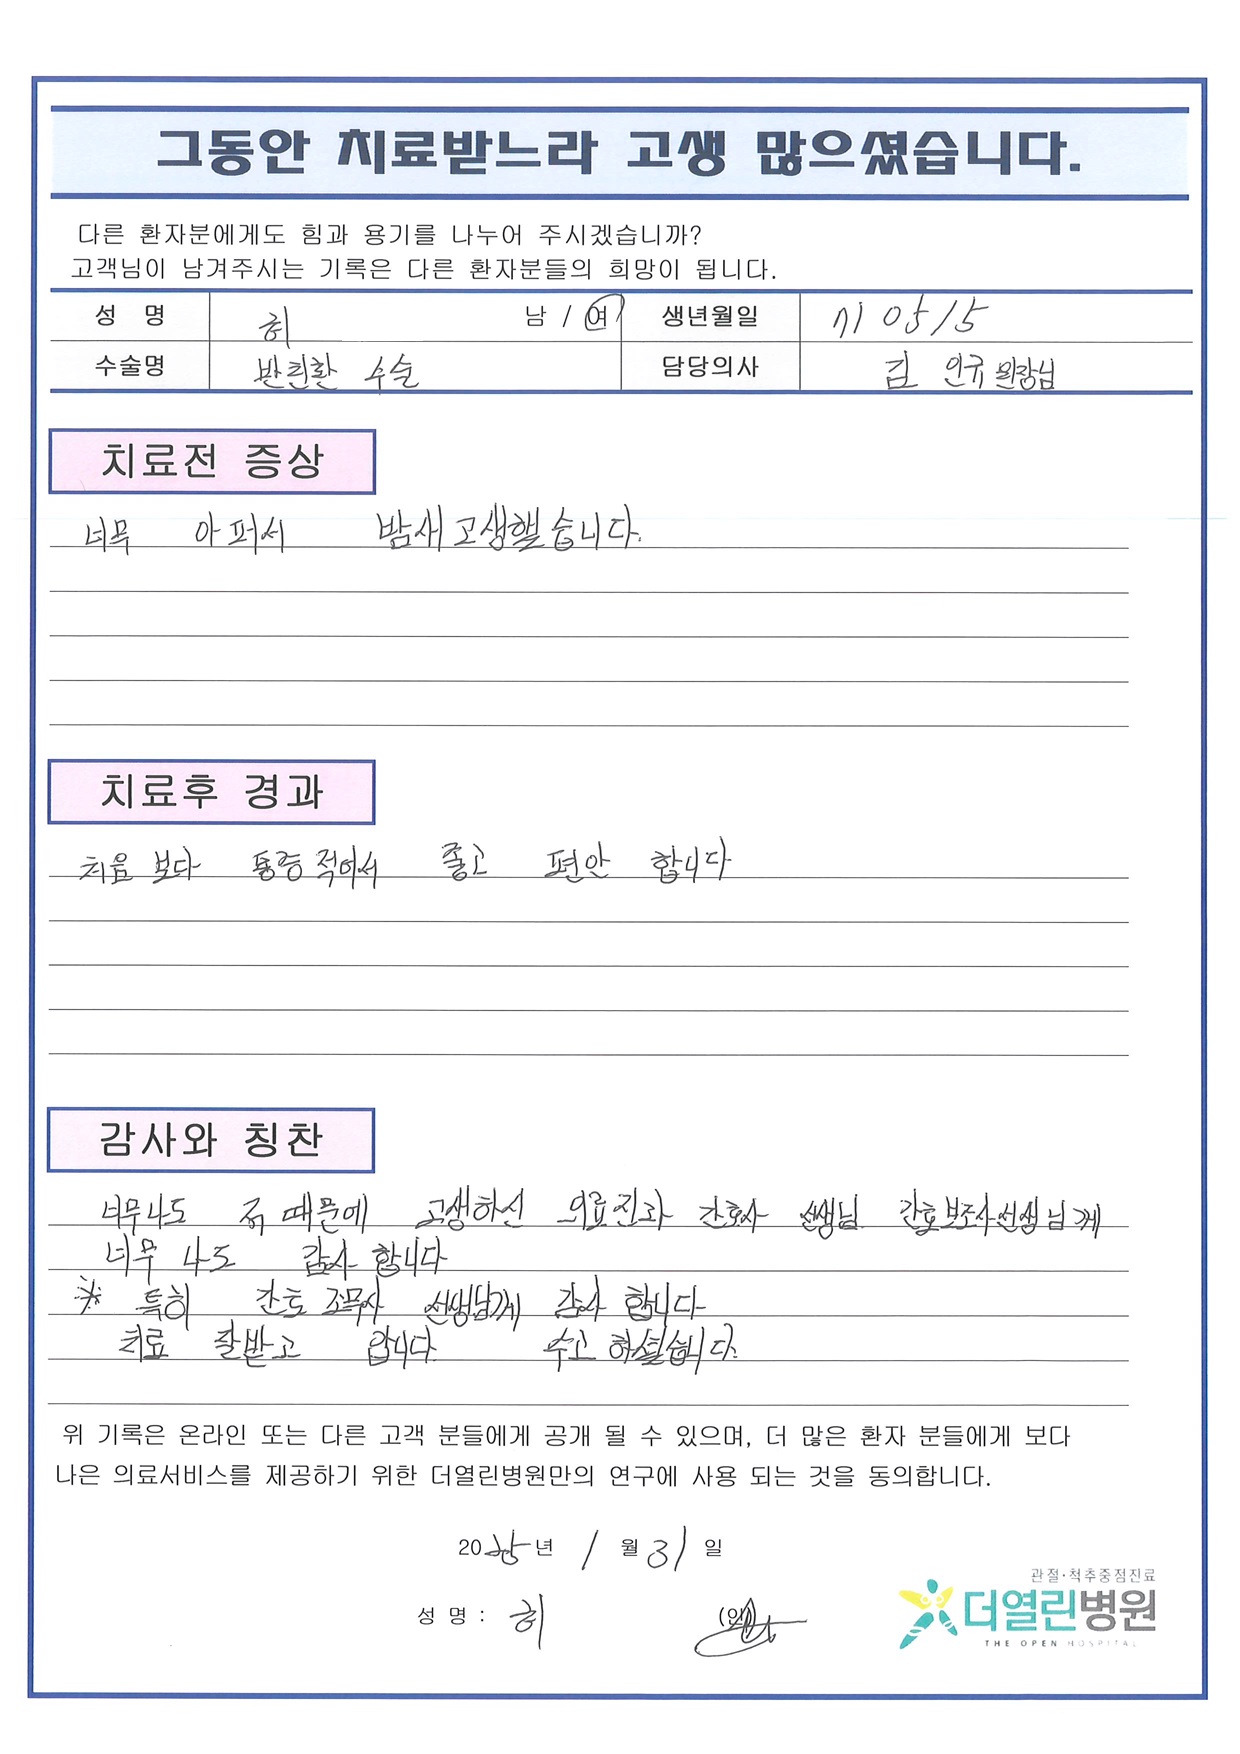 그동안 치료받느라 고생 많으셨습니다.
다른 환자분에게도 힘과 용기를 나누어 주시겠습니까?
고객님이 남겨주시는 기록은 다른 환자분들의 희망이 됩니다.
성 명 희 남 / 여 생년월일 710515
수술명 수술 담당의사 김 인규 원장님
치료전 증상
너무 아퍼서 밤새고생했습니다.
치료후 경과
처음 보다 통증 적어서 좋고 편안 합니다
감사와 칭찬
너무나도 저 때문에 고생하신 의료진과 간호사 선생님 간호보조사선생님께
너무 나도 감사 합니다
※ 특히 간호 조무사 선생님께 감사 합니다
치료 잘받고 갑니다. 수고 하셨습니다.
위 기록은 온라인 또는 다른 고객 분들에게 공개 될 수 있으며, 더 많은 환자 분들에게 보다
나은 의료서비스를 제공하기 위한 더열린병원만의 연구에 사용 되는 것을 동의합니다.
2025년 1월 31일
성 명 : 희 (인)
관절·척추중점진료
더열린병원
THE OPEN HOSPITAL